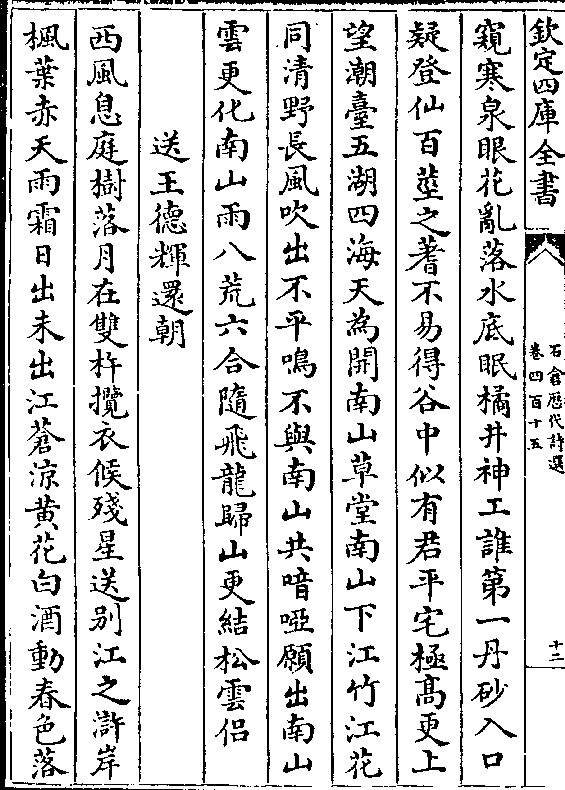 欽定四庫全書
石倉歴代詩選
卷四百十五
十二
窺寒泉眼花亂落水底眠橘井神工誰第一丹砂入口
疑登仙百莖之蓍不易得谷中似有君平宅極髙更上
望潮臺五湖四海天為開南山草堂南山下江竹江花
同清野長風吹出不平鳴不與南山共喑啞願出南山
雲更化南山雨八荒六合隨飛龍歸山更結松雲侣
送王德輝還朝
西風息庭樹落月在雙杵攬衣候殘星送别江之滸岸
楓葉赤天雨霜日出未出江蒼凉黄花白酒動春色落